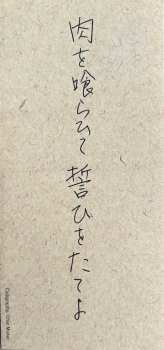 肉を喰らひて誓ひをたてよ